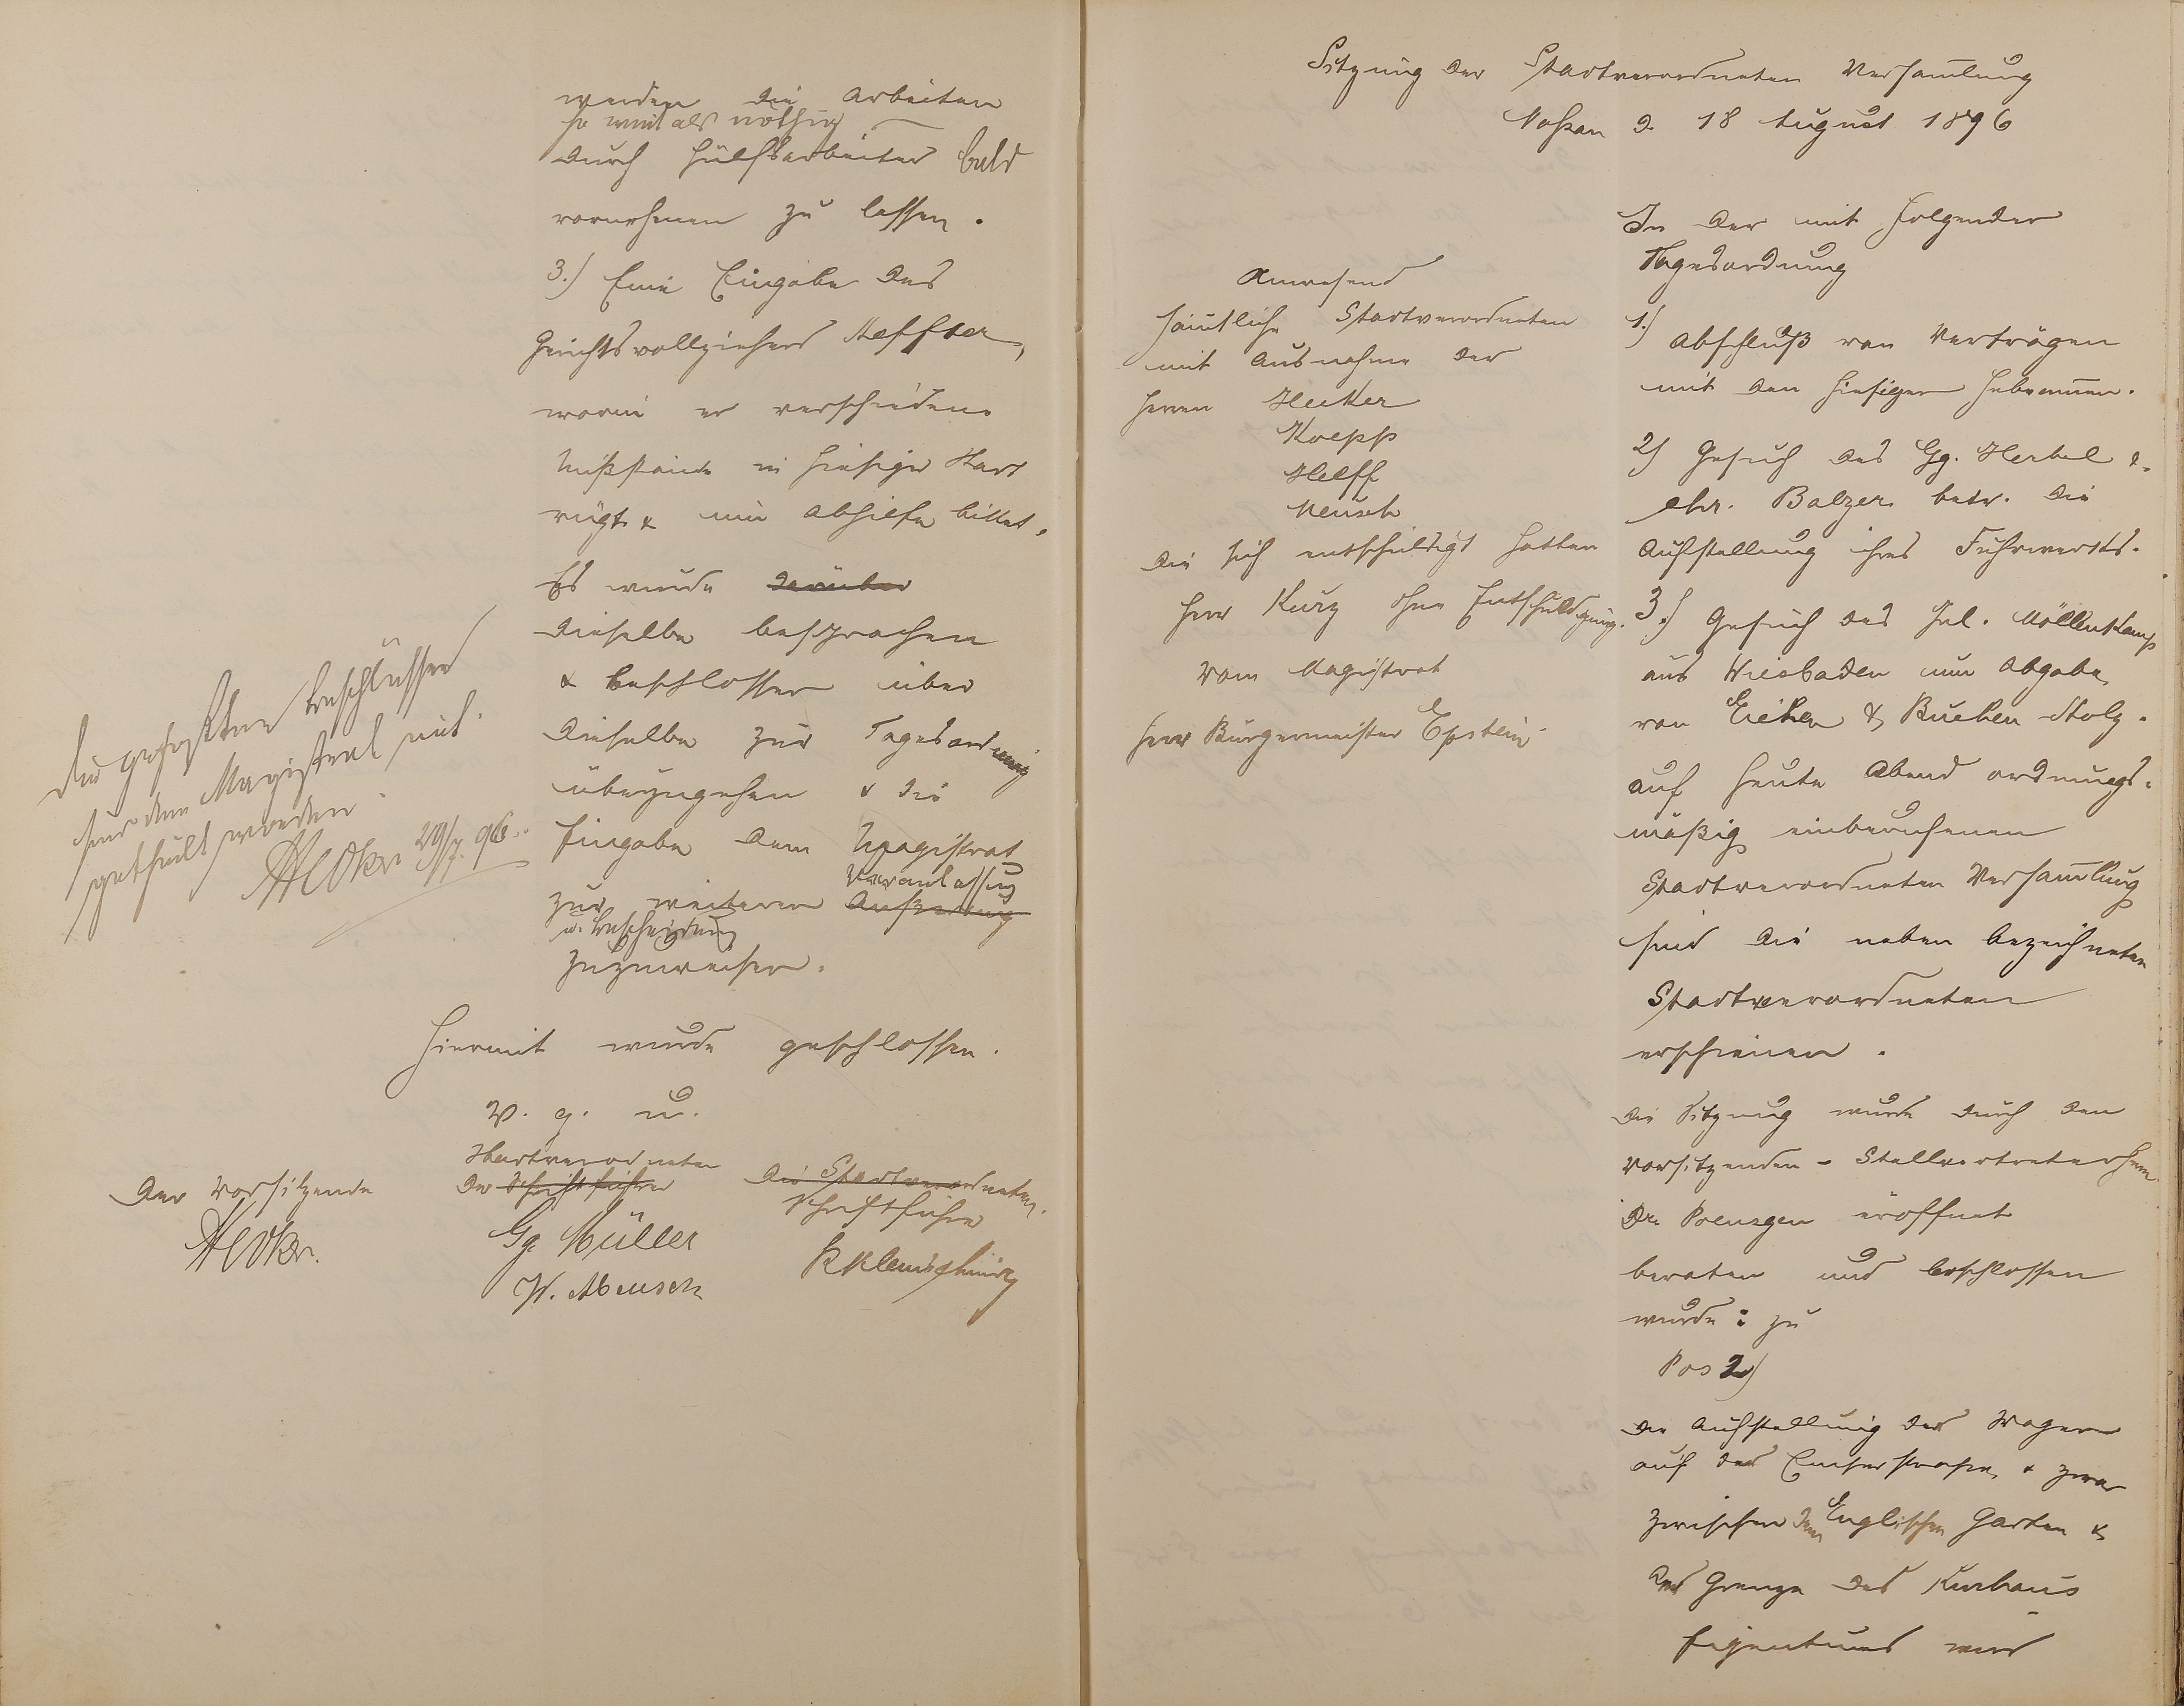 werden die Arbeiten
so weit als nöthig
durch Hülfsarbeiter bald
vornehmen zu lassen.
3.) Eine Eingabe des
Gerichtsvollziehers Heffter,
worin er verschiedene
Mißstände in hiesiger Stadt
rügt & um Abhilfe bittet,
Es wurde darüber
dieselbe besprochen
& beschlossen über
dieselbe zur Tagesordnung
überzugehen & die
Eingabe dem Magistrat
Veranlassung
zur weiteren Äußerung
u. Bescheidung
zuzuweisen.
Die gefaßten Beschlüsse
sind dem Magistrat mit-
getheilt worden.
29/7. 96.
Hiermit wurde geschlossen.
V. g. u.
Der Vorsitzende
Stadtverordneten
Der Schriftführer
Gg. Müller
W. Meusch
Die Stadtverordneten.
Schriftführer
Sitzung der Stadtverordneten Versam̅lung
Naßau d. 18 August 1896
Anwesend
sämtliche Stadtverordneten
mit Ausnahme der
Herren Hecker
Koepp
Helff
Meusch
die sich entschuldigt hatten
Herr Kurz ohne Entschuldigung.
Vom Magistrat
Herr Bürgermeister Epstein
In der mit folgender
Tagesordnung
1.) Abschluß von Verträgen
mit den hiesigen Hebam̅en.
2) Gesuch des Gg. Herbel &
Chr. Balzer betr. die
Aufstellung ihres Fuhrwerks.
3.) Gesuch des Jul. Möllenkamp
aus Wiesbaden um Abgabe
von Eichen & Buchen-Holz.
auf heute Abend ordnungs-
mäßig einberufenen
Stadtverordneten Versam̅lung
sind die neben bezeichneten
Stadtverordneten
erschienen.
Die Sitzung wurde durch den
Vorsitzenden-Stellvertreter Herrn
Dr. Poensgen eröffnet
beraten und beschlossen
wurde: zu
Pos 2)
Die Aufstellung der Wagen
auf der Emserstraße, & zwar
zwischen dem Englischen Garten &
der Grenze des Kurhaus
Eigentums wird